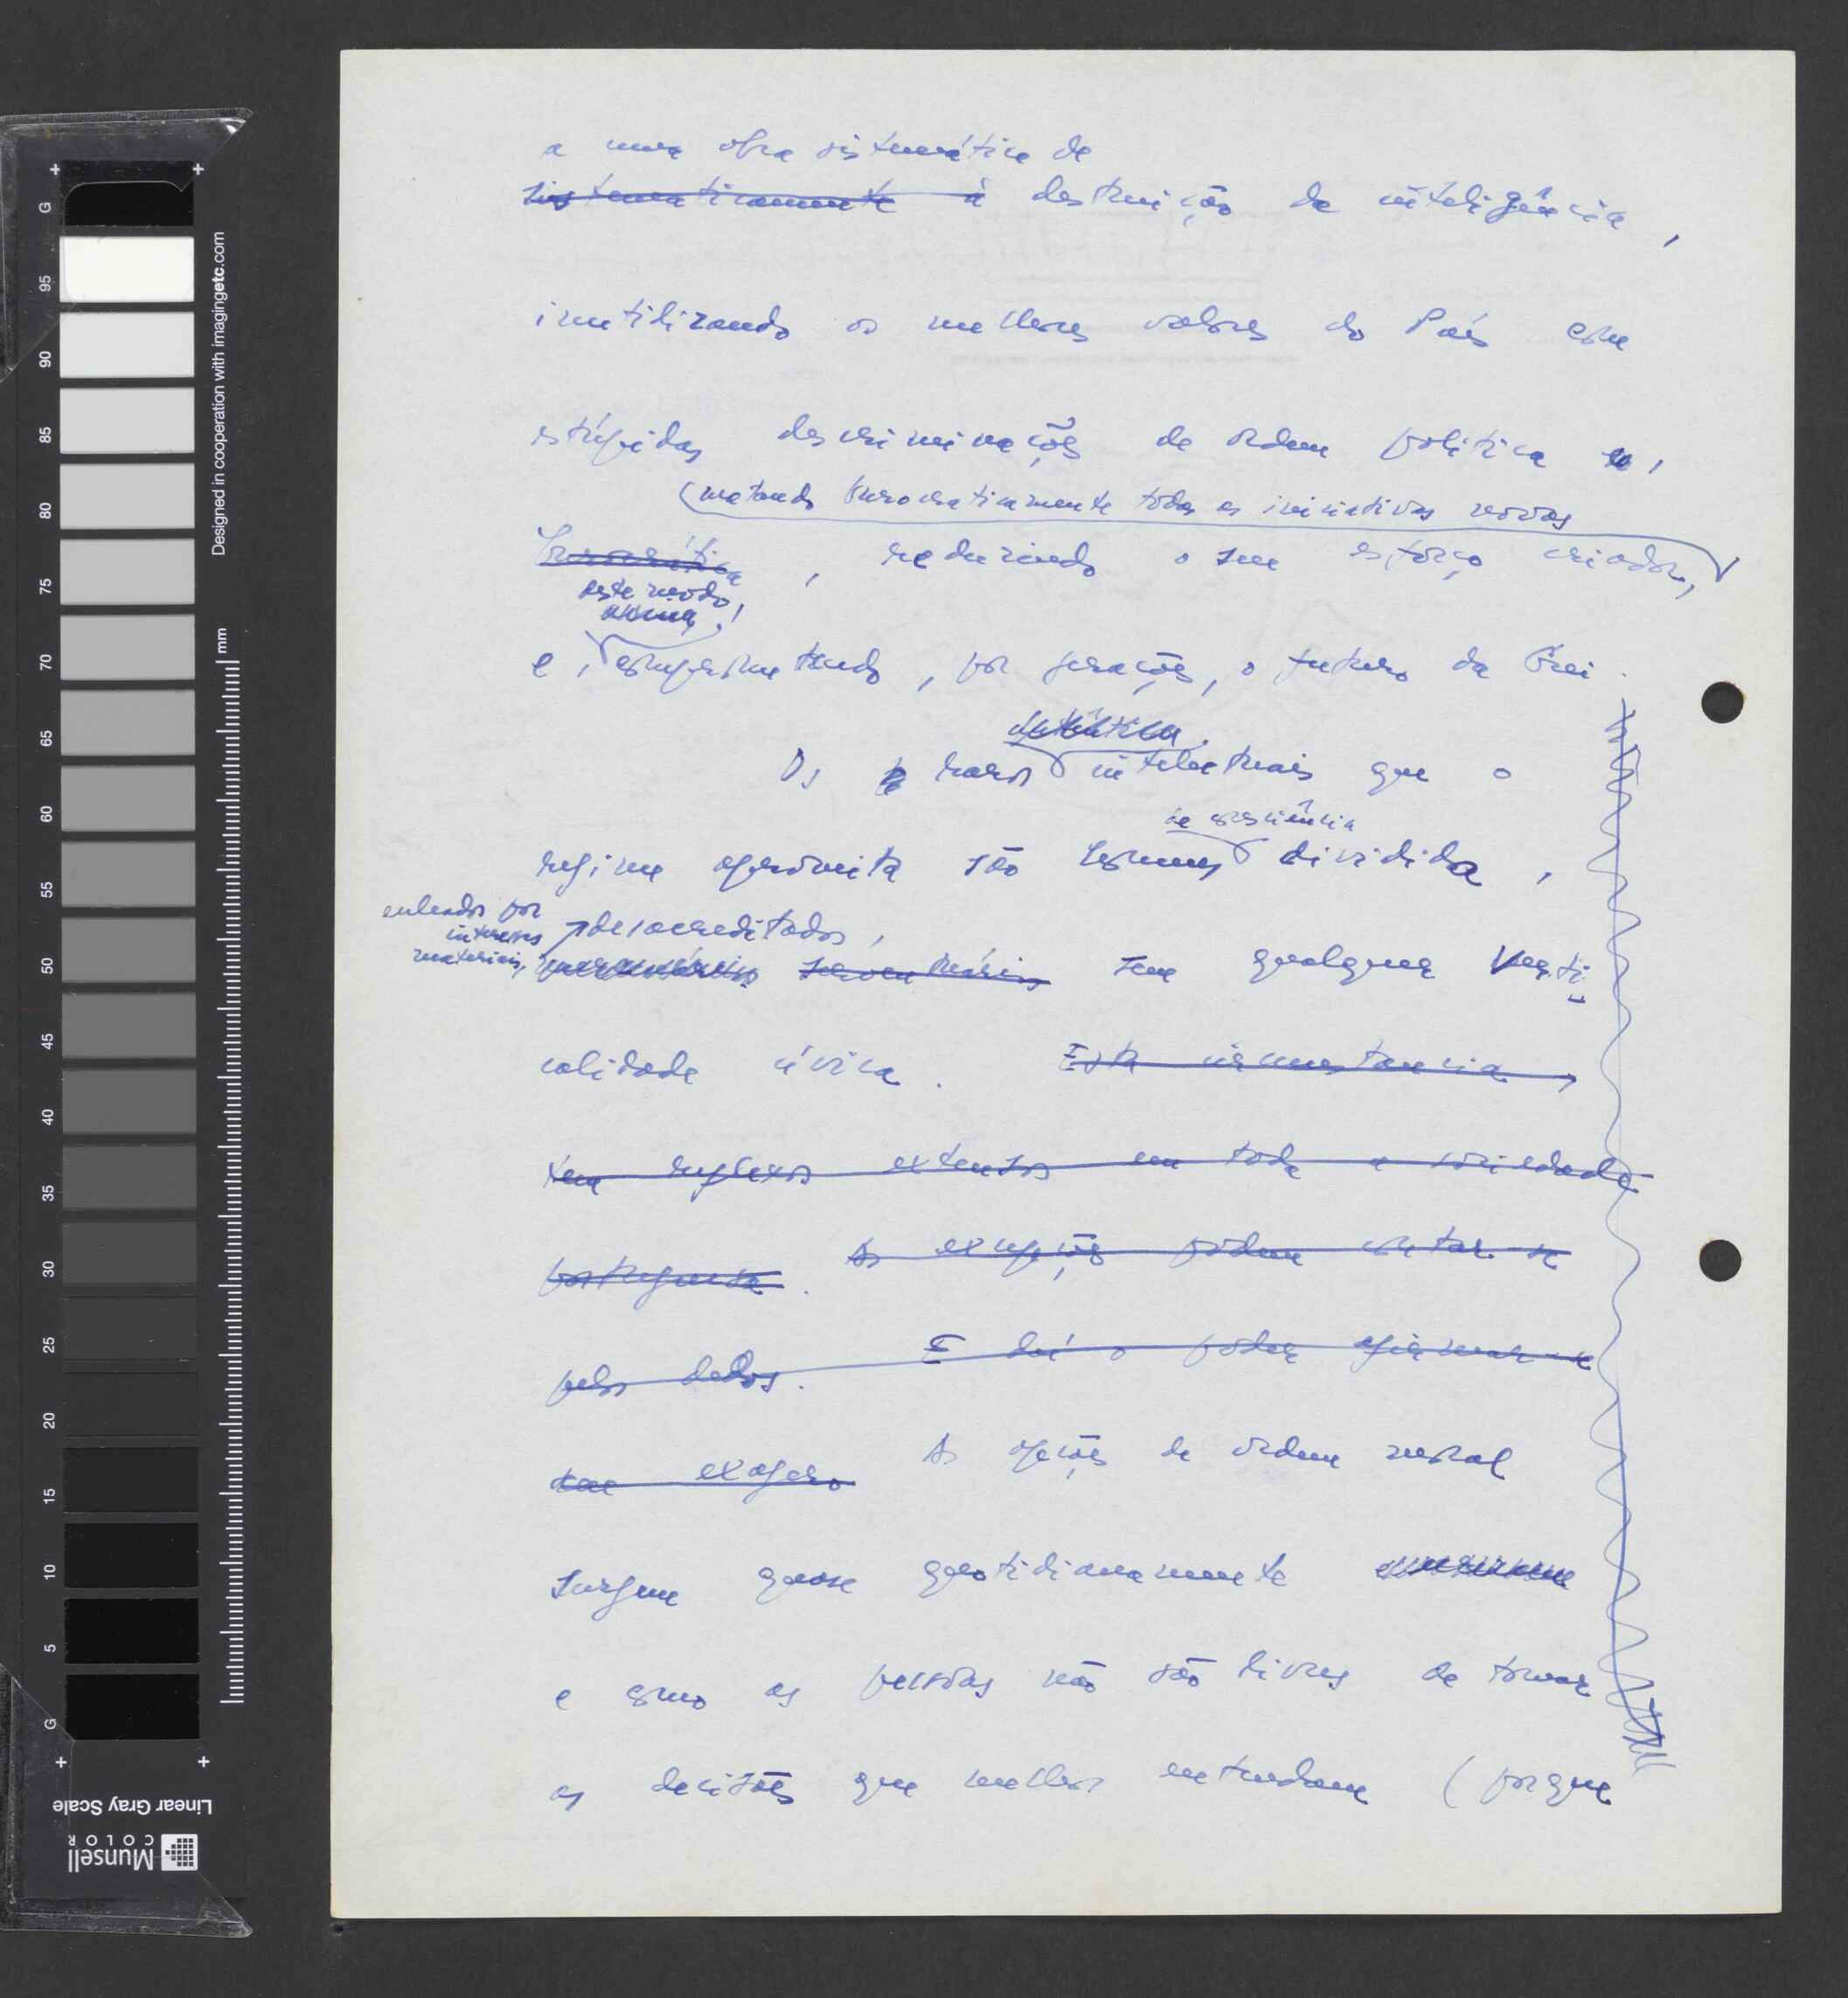 a uma obra sistemática de
sistematicamente à destruição da inteligência,
inutilizando os melhores valores do País com
estúpidas descriminações de ordem política
(matando burocraticamente todas as iniciativas novas
burocrática, reduzindo o seu esforço criador,
deste modo,
e, comprometendo, por gerações, o futuro da Grei.
autênticos
Os raros intelectuais que o
de consciência
regime aproveita são homens dividida,
enleados por
interesses
materiais,
desacreditados,
sem qualquer verti-
calidade cívica. Esta circunstancia,
tem reflexos extensos em toda a sociedade
portuguesa. As excepções podem contar-se
pelos dedos. E daí o poder afirmar-se
sem exagero As opções de ordem moral
surgem quase quotidianamente
e como as pessoas não são livres de tomar
as decisões que melhor entendam (porque
G
95
90
85
80
75
70
65
60
55
50
45
40
35
30
25
20
15
10
5
G
Designed in cooperation with imagingetc.com
mm
Linear Gray Scale
Munsell
COLOR